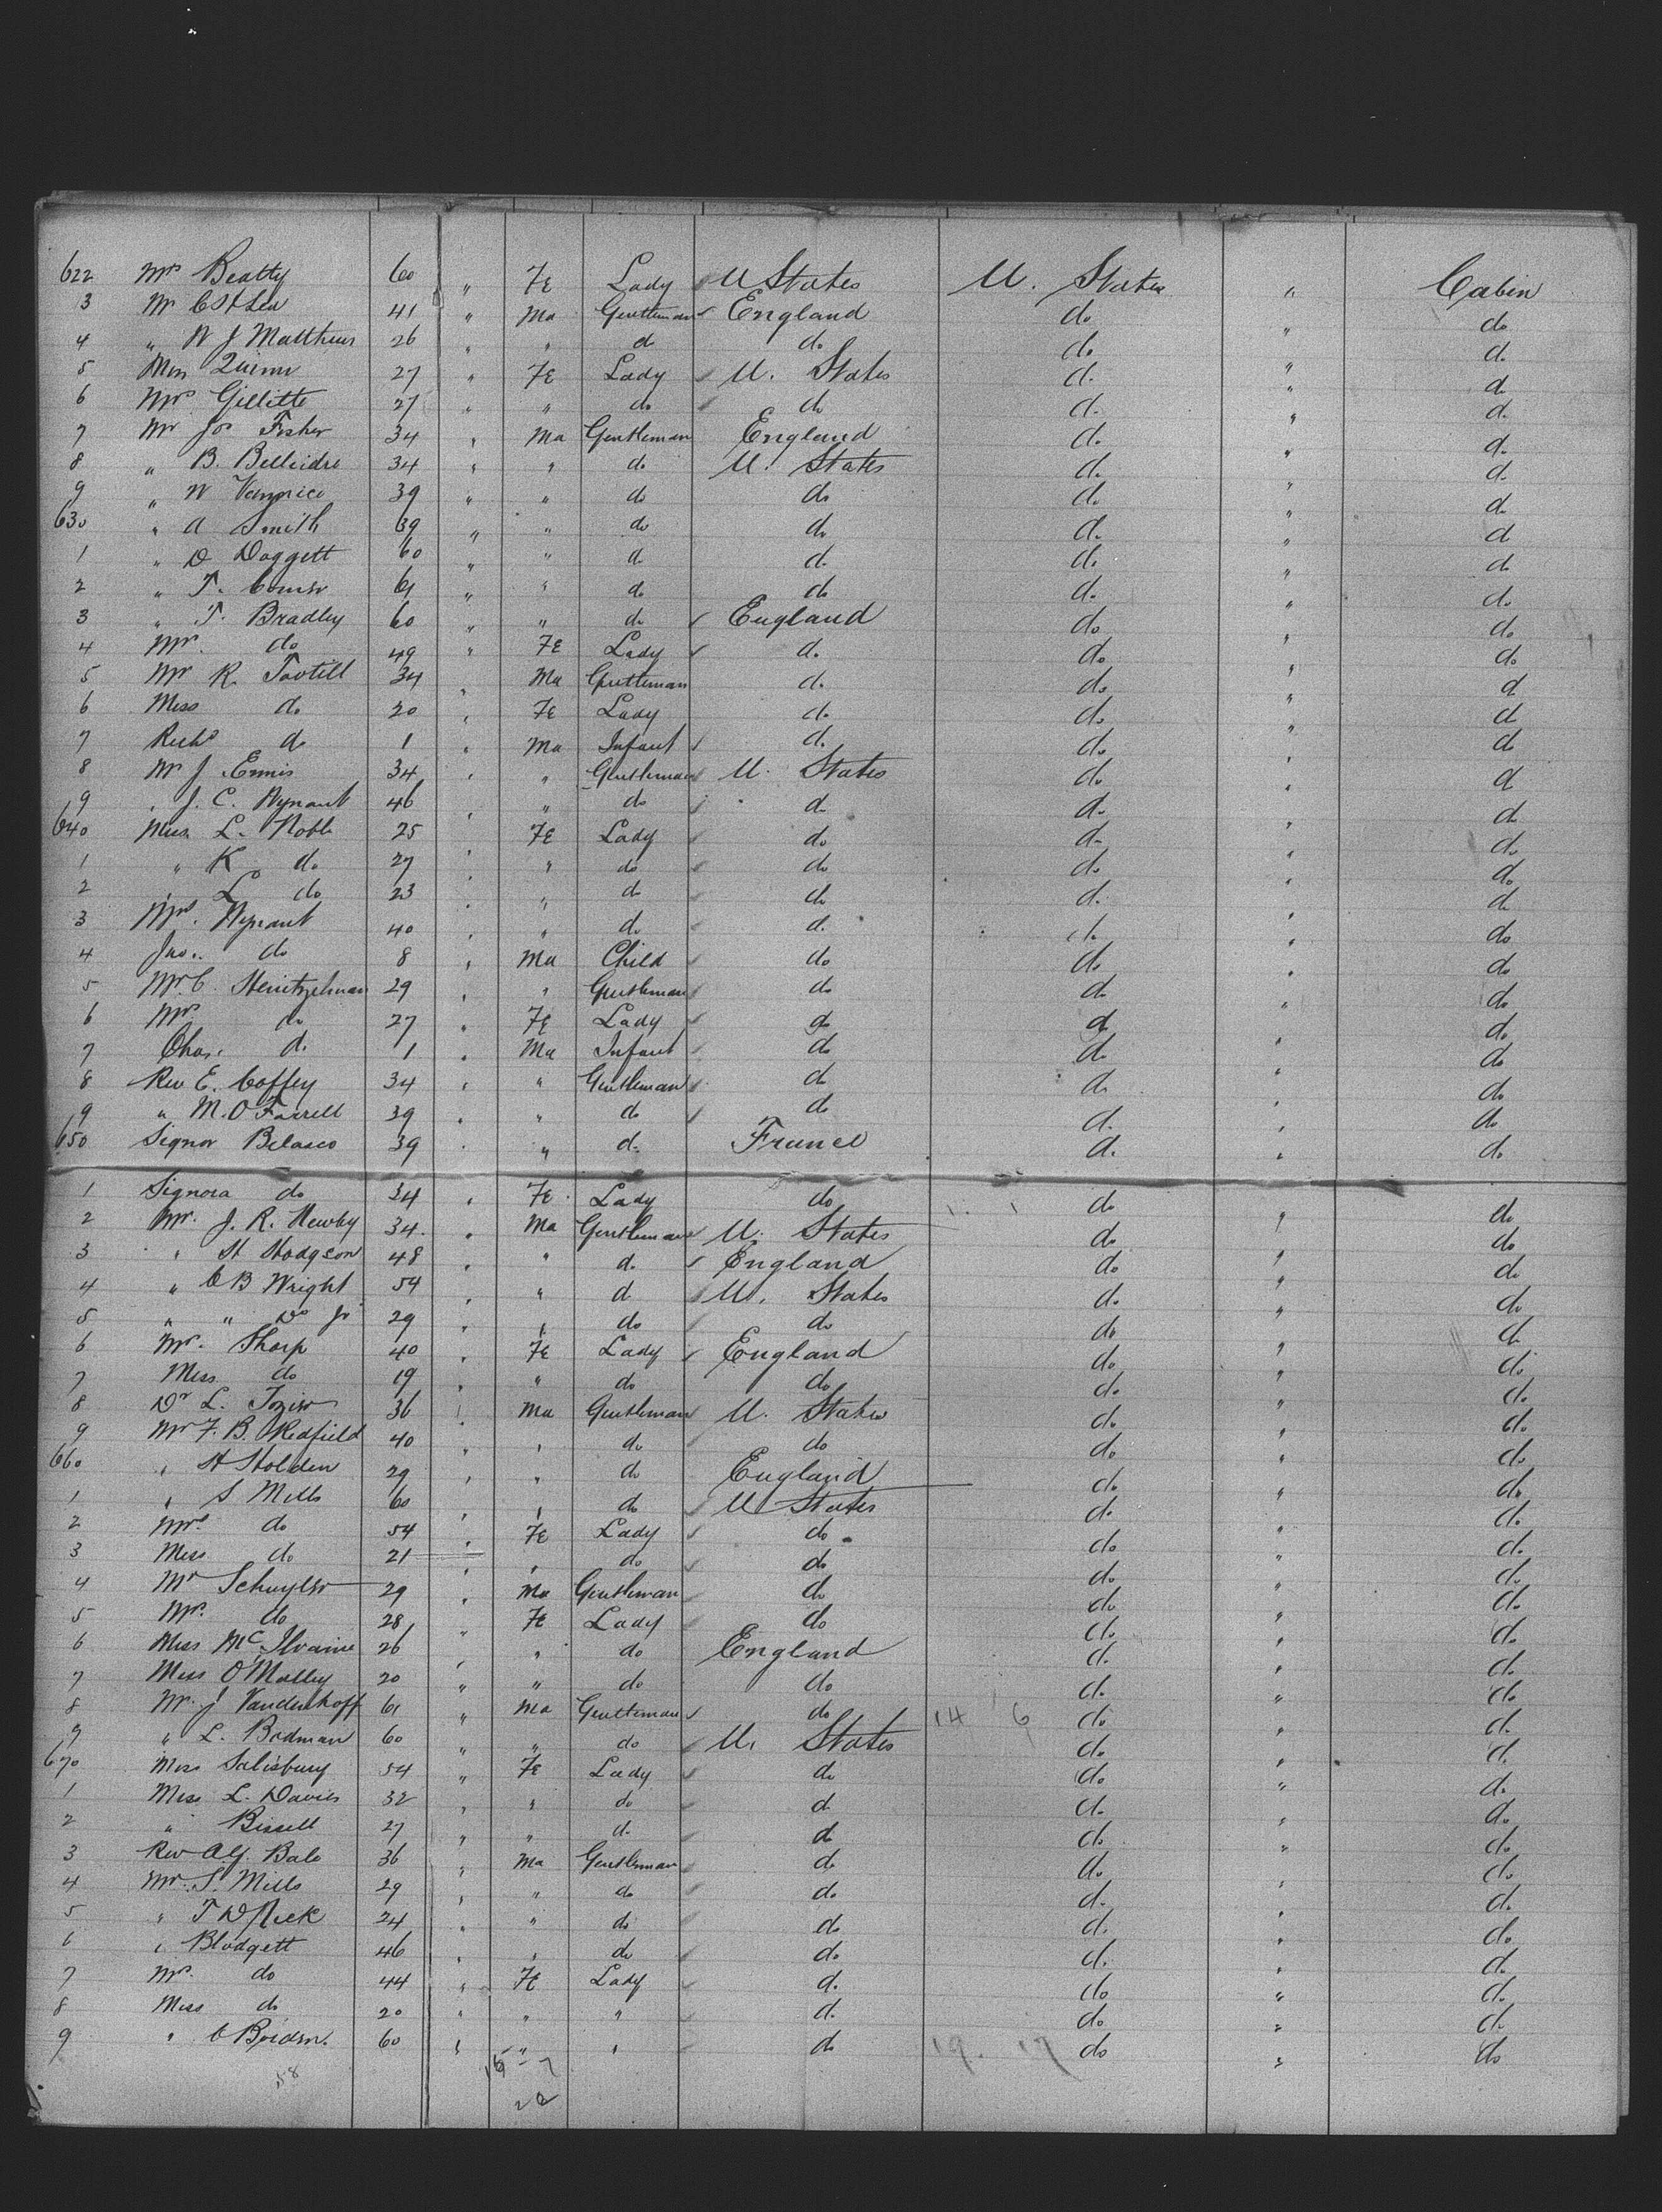 622 Mrs Beatty 60 " Fe Lady U States U. States " Cabin
3 Mr 41 " Ma Gentleman England do " do
4 " W J Matthews 26 " " do do do " do
5 Miss Quinn 27 " Fe Lady U. States do " do
6 Mrs Gillitte 27 " " do do do " do
7 Mr Jos Fisher 34 " Ma Gentleman England do " do
8 " B. Belleidre 34 " " do U. States do " do
9 " W 39 " " do do do " do
630 " A Smith 39 " " do do do " do
1 " D Doggett 60 " " do do do " do
2 " T. 61 " " do do do " do
3 " T. Bradley 60 " " do England do " do
4 Mrs. do 49 " Fe Lady do do " do
5 Mr R. Tootill 34 " Ma Gentleman do do " do
6 Miss do 20 " Fe Lady do do " do
7 Richd do 1 " Ma Infant do do " do
8 Mr J. Ennis 34 " " Gentleman U. States do " do
9 " J. C. Wynant 46 " " do do do " do
640 Miss L. Noble 25 " Fe Lady do do " do
1 " K do 27 " " do do do " do
2 " L do 23 " " do do do " do
3 Mrs. Wynant 40 " " do do do " do
4 Jno. do 8 " Ma Child do do " do
5 Mr C. Heintzelman 29 " " Gentleman do do " do
6 Mrs do 27 " Fe Lady do do " do
7 Chas. do 1 " Ma Infant do do " do
8 Rev E. Coffey 34 " " Gentleman do do " do
9 " M. O Farrell 39 " " do do do " do
650 Signor Belasco 39 " " do France do " do
1 Signora do 34 " Fe Lady do do " do
2 Mr. J. R. Newby 34 " Ma Gentleman U. States do " do
3 " H Hodgson 48 " " do England do " do
4 " C B Wright 54 " " do U. States do " do
5 " " Do Jr 29 " " do do do " do
6 Mrs. Sharp 40 " Fe Lady England do " do
7 Miss do 19 " " do do do " do
8 Dr L. Tozier 36 " Ma Gentleman U. States do " do
9 Mr F. B. Redfield 40 " " do do do " do
660 " H Holden 29 " " do England do " do
1 " S Mills 60 " " do U States do " do
2 Mrs. do 54 " Fe Lady do do " do
3 Miss do 21 " " do do do " do
4 Mr Schuyler 29 " Ma Gentleman do do " do
5 Mrs. do 28 " Fe Lady do do " do
6 Miss McIlvaine 26 " " do England do " do
7 Miss O'Malley 20 " " do do do " do
8 Mr. J Vandenhoff 61 " Ma Gentleman do 14 6 do " do
9 " L. Bodman 60 " " do U. States do " do
670 Miss Salisbury 54 " Fe Lady do do " do
1 Miss L. Davies 32 " " do do do " do
2 " Bissell 27 " " do do do " do
3 Rev Alf. Bale 36 " Ma Gentleman do do " do
4 Mr. S. Mills 29 " " do do do " do
5 " T D 24 " " do do do " do
6 " Blodgett 46 " " do do do " do
7 Mrs. do 44 " Fe Lady do do " do
8 Miss do 20 " " " do do " do
9 " C Borden. 60 " " " do 19. 17 do " do
58 15 - 7
22